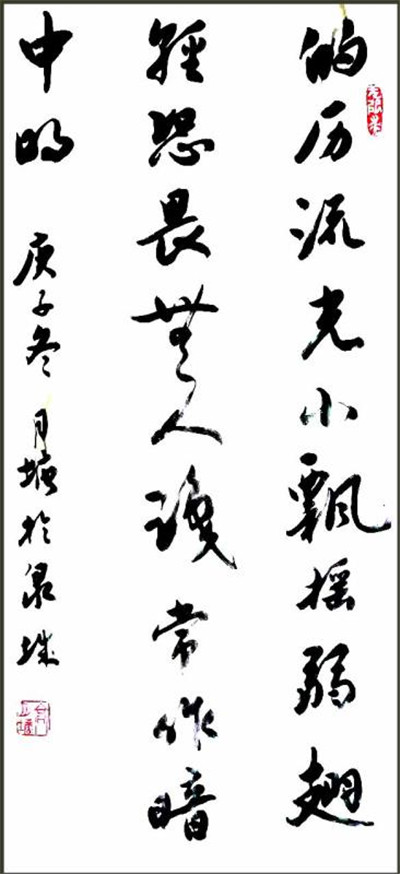 的历流光小飄摇弱翅
輕恐畏無人識常作暗
中明 庚子冬月塘於泉城